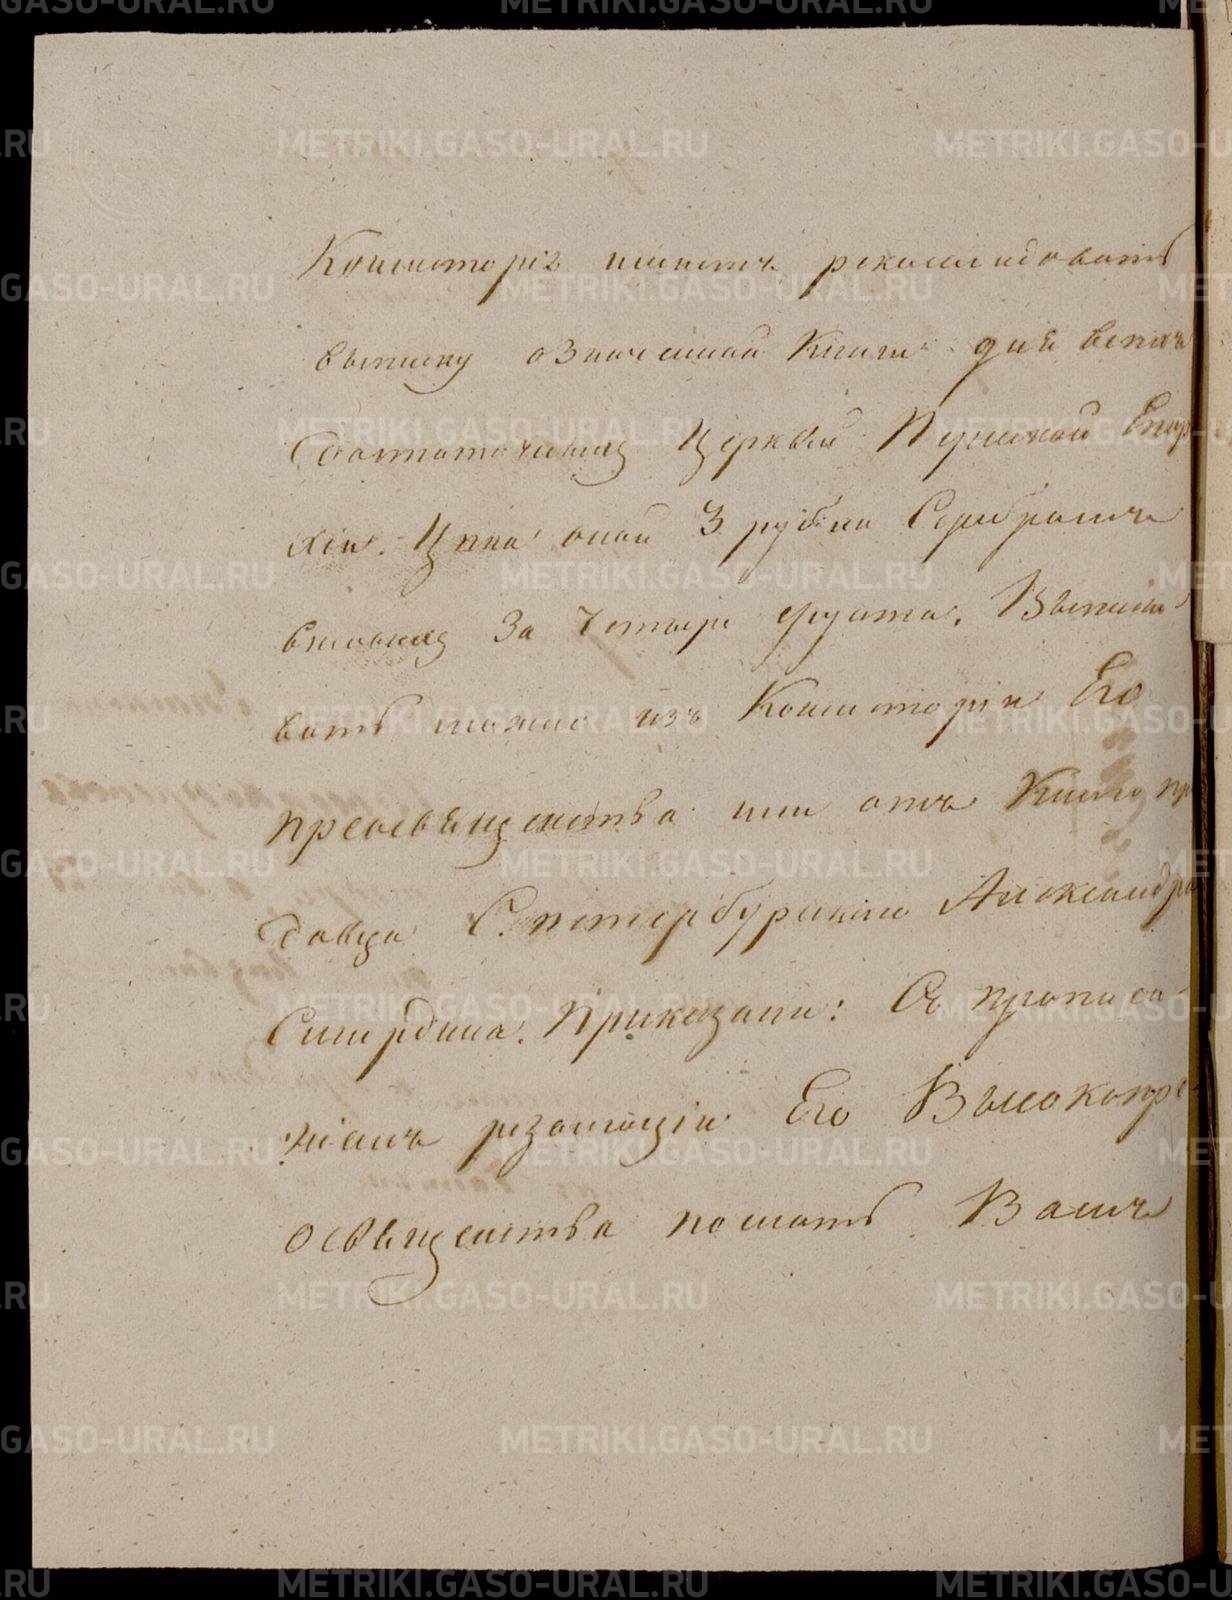 Консисторія имѣетъ рекомендовать
выписку означенной Книги для всѣхъ
достаточныхъ Церквей Пермской Епар
хіи. Цѣна оной 3 рубли Серебромъ
вѣсовыхъ за четыре фунта. Выписы
вать можно изъ Консисторіи Его
преосвященства или отъ Книгопро
давца С. петербургскаго Александра
Смирдина. Приказали: Съ прописа
ніемъ резолюціи Его Высокопре-
освященства послать Вамъ
METRIKI.GASO-URAL.RU